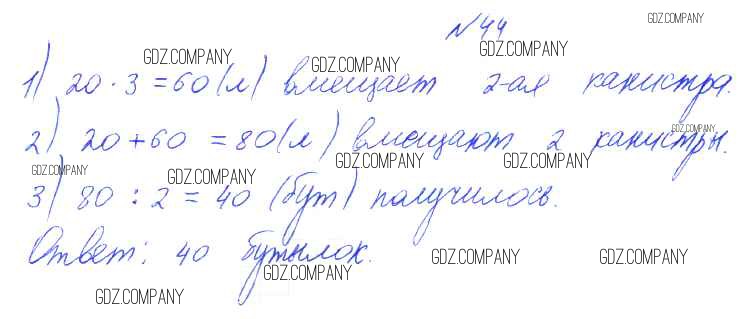 GDZ.COMPANY
№ 44
GDZ.COMPANY GDZ.COMPANY GDZ.COMPANY
1) 20 · 3 = 60 (л) вмещает 2-ая канистра.
GDZ.COMPANY
2) 20 + 60 = 80 (л) вмещают 2 канистры.
GDZ.COMPANY GDZ.COMPANY GDZ.COMPANY GDZ.COMPANY
3) 80 : 2 = 40 (бут) получилось.
Ответ: 40 бутылок.
GDZ.COMPANY GDZ.COMPANY GDZ.COMPANY
GDZ.COMPANY